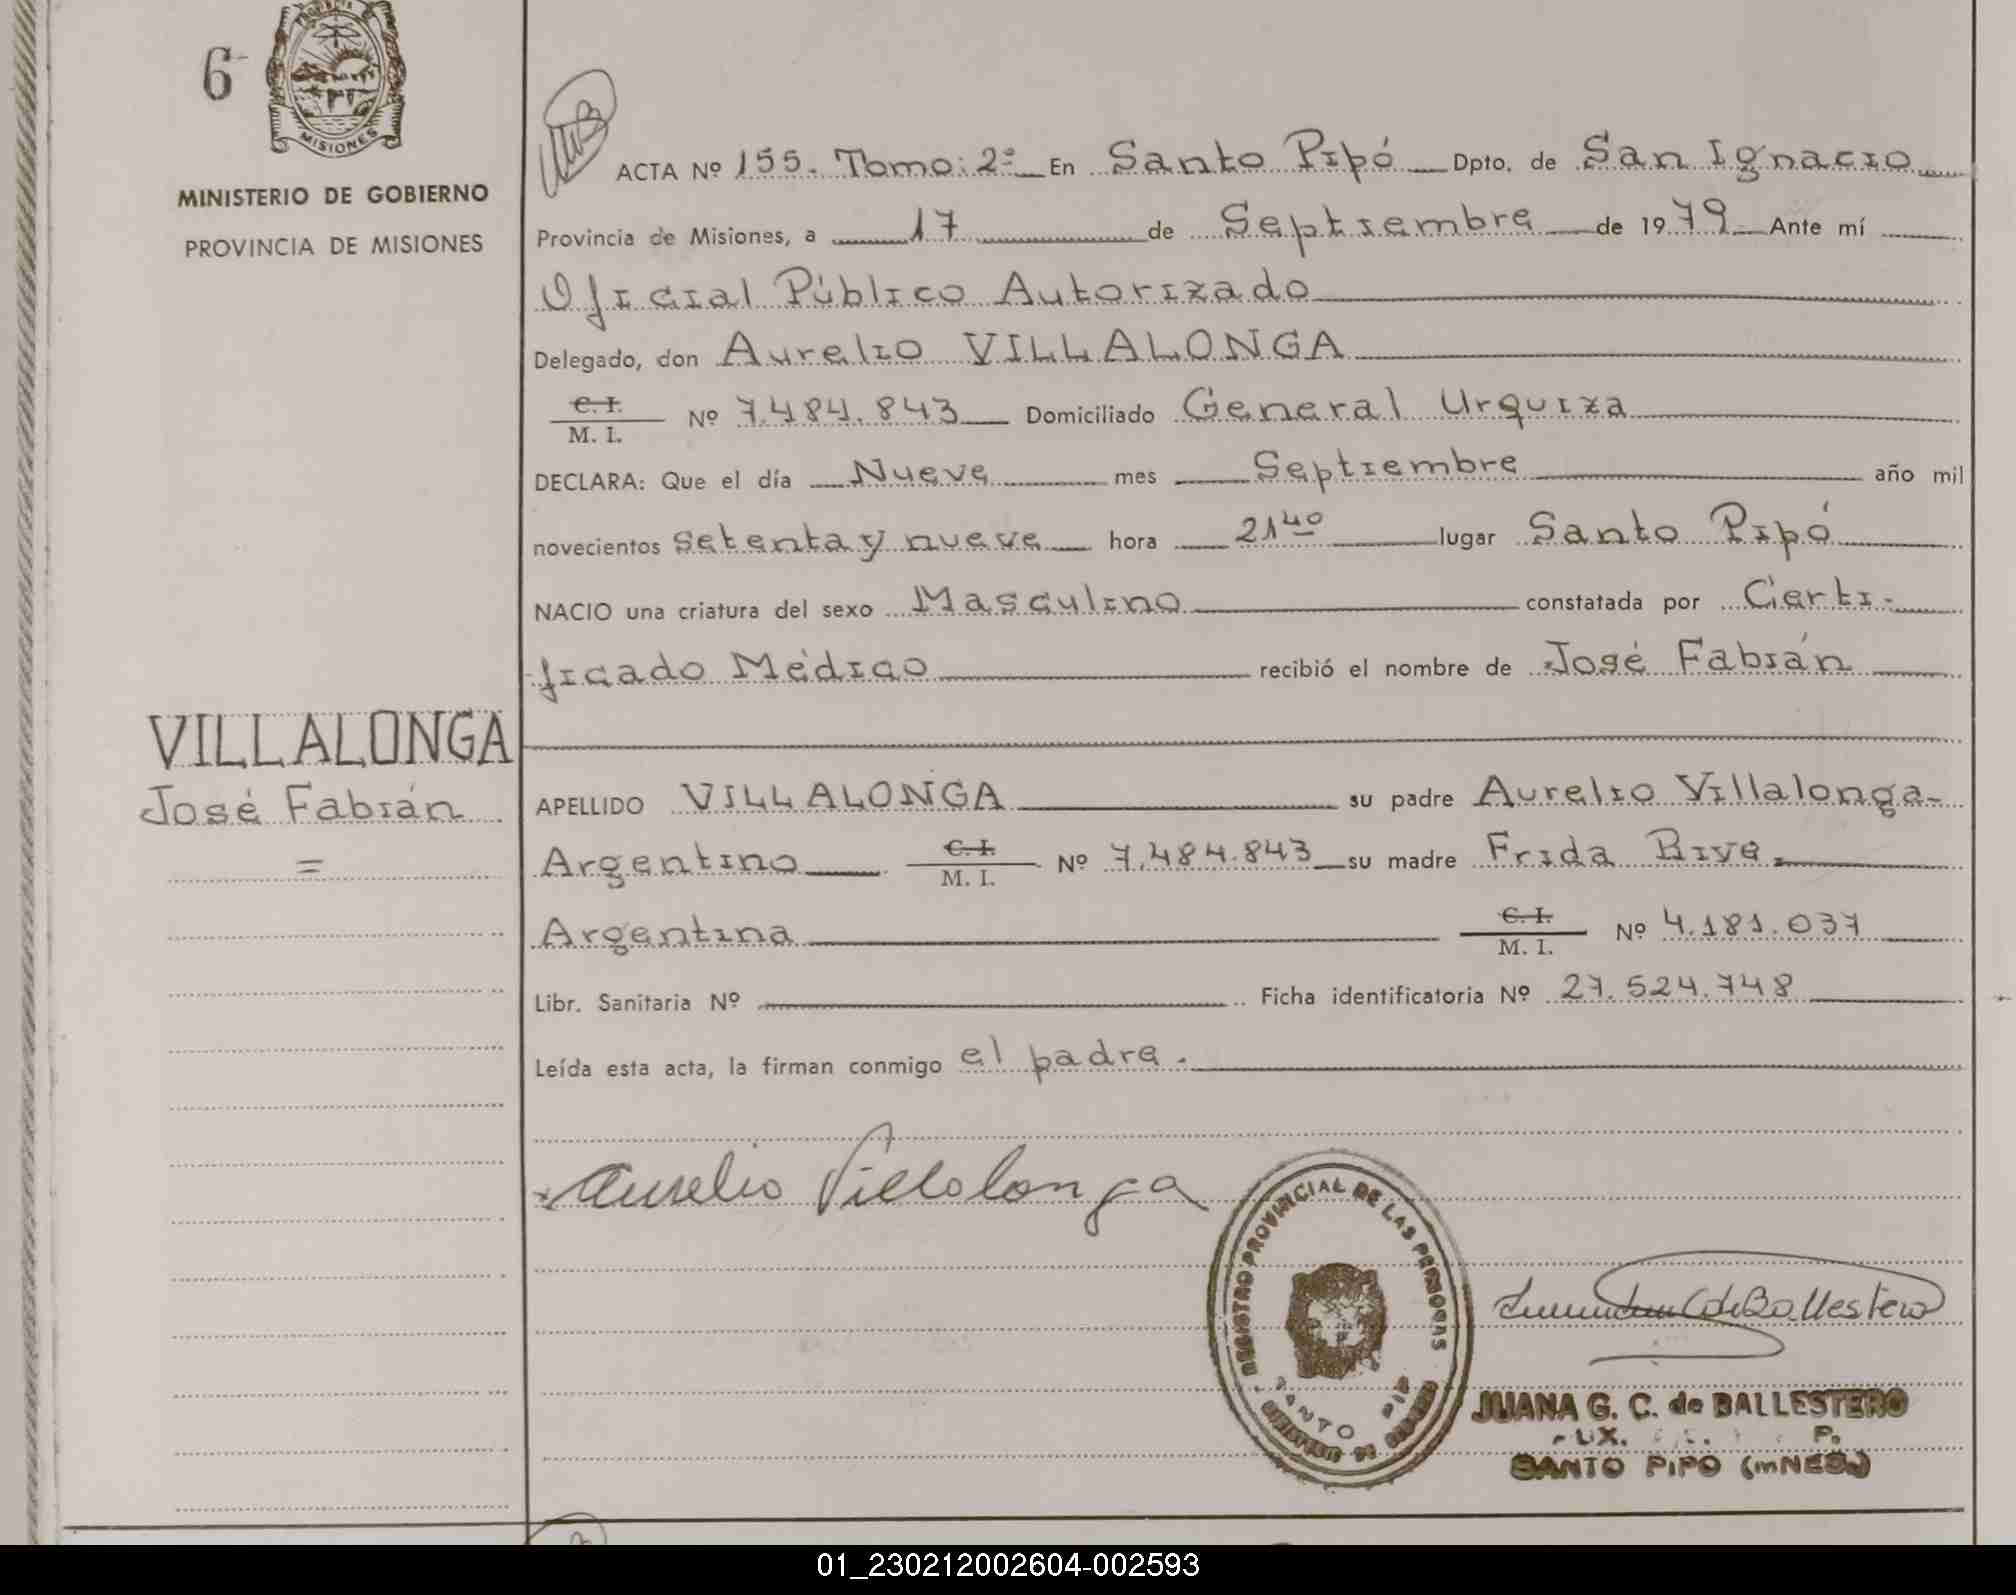 6
MISIONES
MINISTERIO DE GOBIERNO
PROVINCIA DE MISIONES
VILLALONGA
José Fabián
=
ACTA Nº 155. Tomo: 2º En Santo Pipó Dpto. de San Ignacio
Provincia de Misiones, a 17 de Septiembre de 1979 Ante mí
Oficial Público Autorizado
Delegado, don Aurelio VILLALONGA
C. I. / M. I. Nº 7.484.843 Domiciliado General Urquiza
DECLARA: Que el día Nueve mes Septiembre año mil
novecientos setenta y nueve hora 21 40 lugar Santo Pipó
NACIO una criatura del sexo Masculino constatada por Certi-
ficado Médico recibió el nombre de José Fabián
APELLIDO VILLALONGA su padre Aurelio Villalonga-
Argentino C. I. / M. I. Nº 7.484.843 su madre Frida Bive.
Argentina C. I. / M. I. Nº 4.181.037
Libr. Sanitaria Nº Ficha identificatoria Nº 27.524.748
Leída esta acta, la firman conmigo el padre.
Aurelio Villalonga
REGISTRO PROVINCIAL DE LAS PERSONAS
SANTO PIPO
de Ballestero
JUANA G. C. de BALLESTERO
AUX. P.
SANTO PIPO (mNES.)
01_230212002604-002593